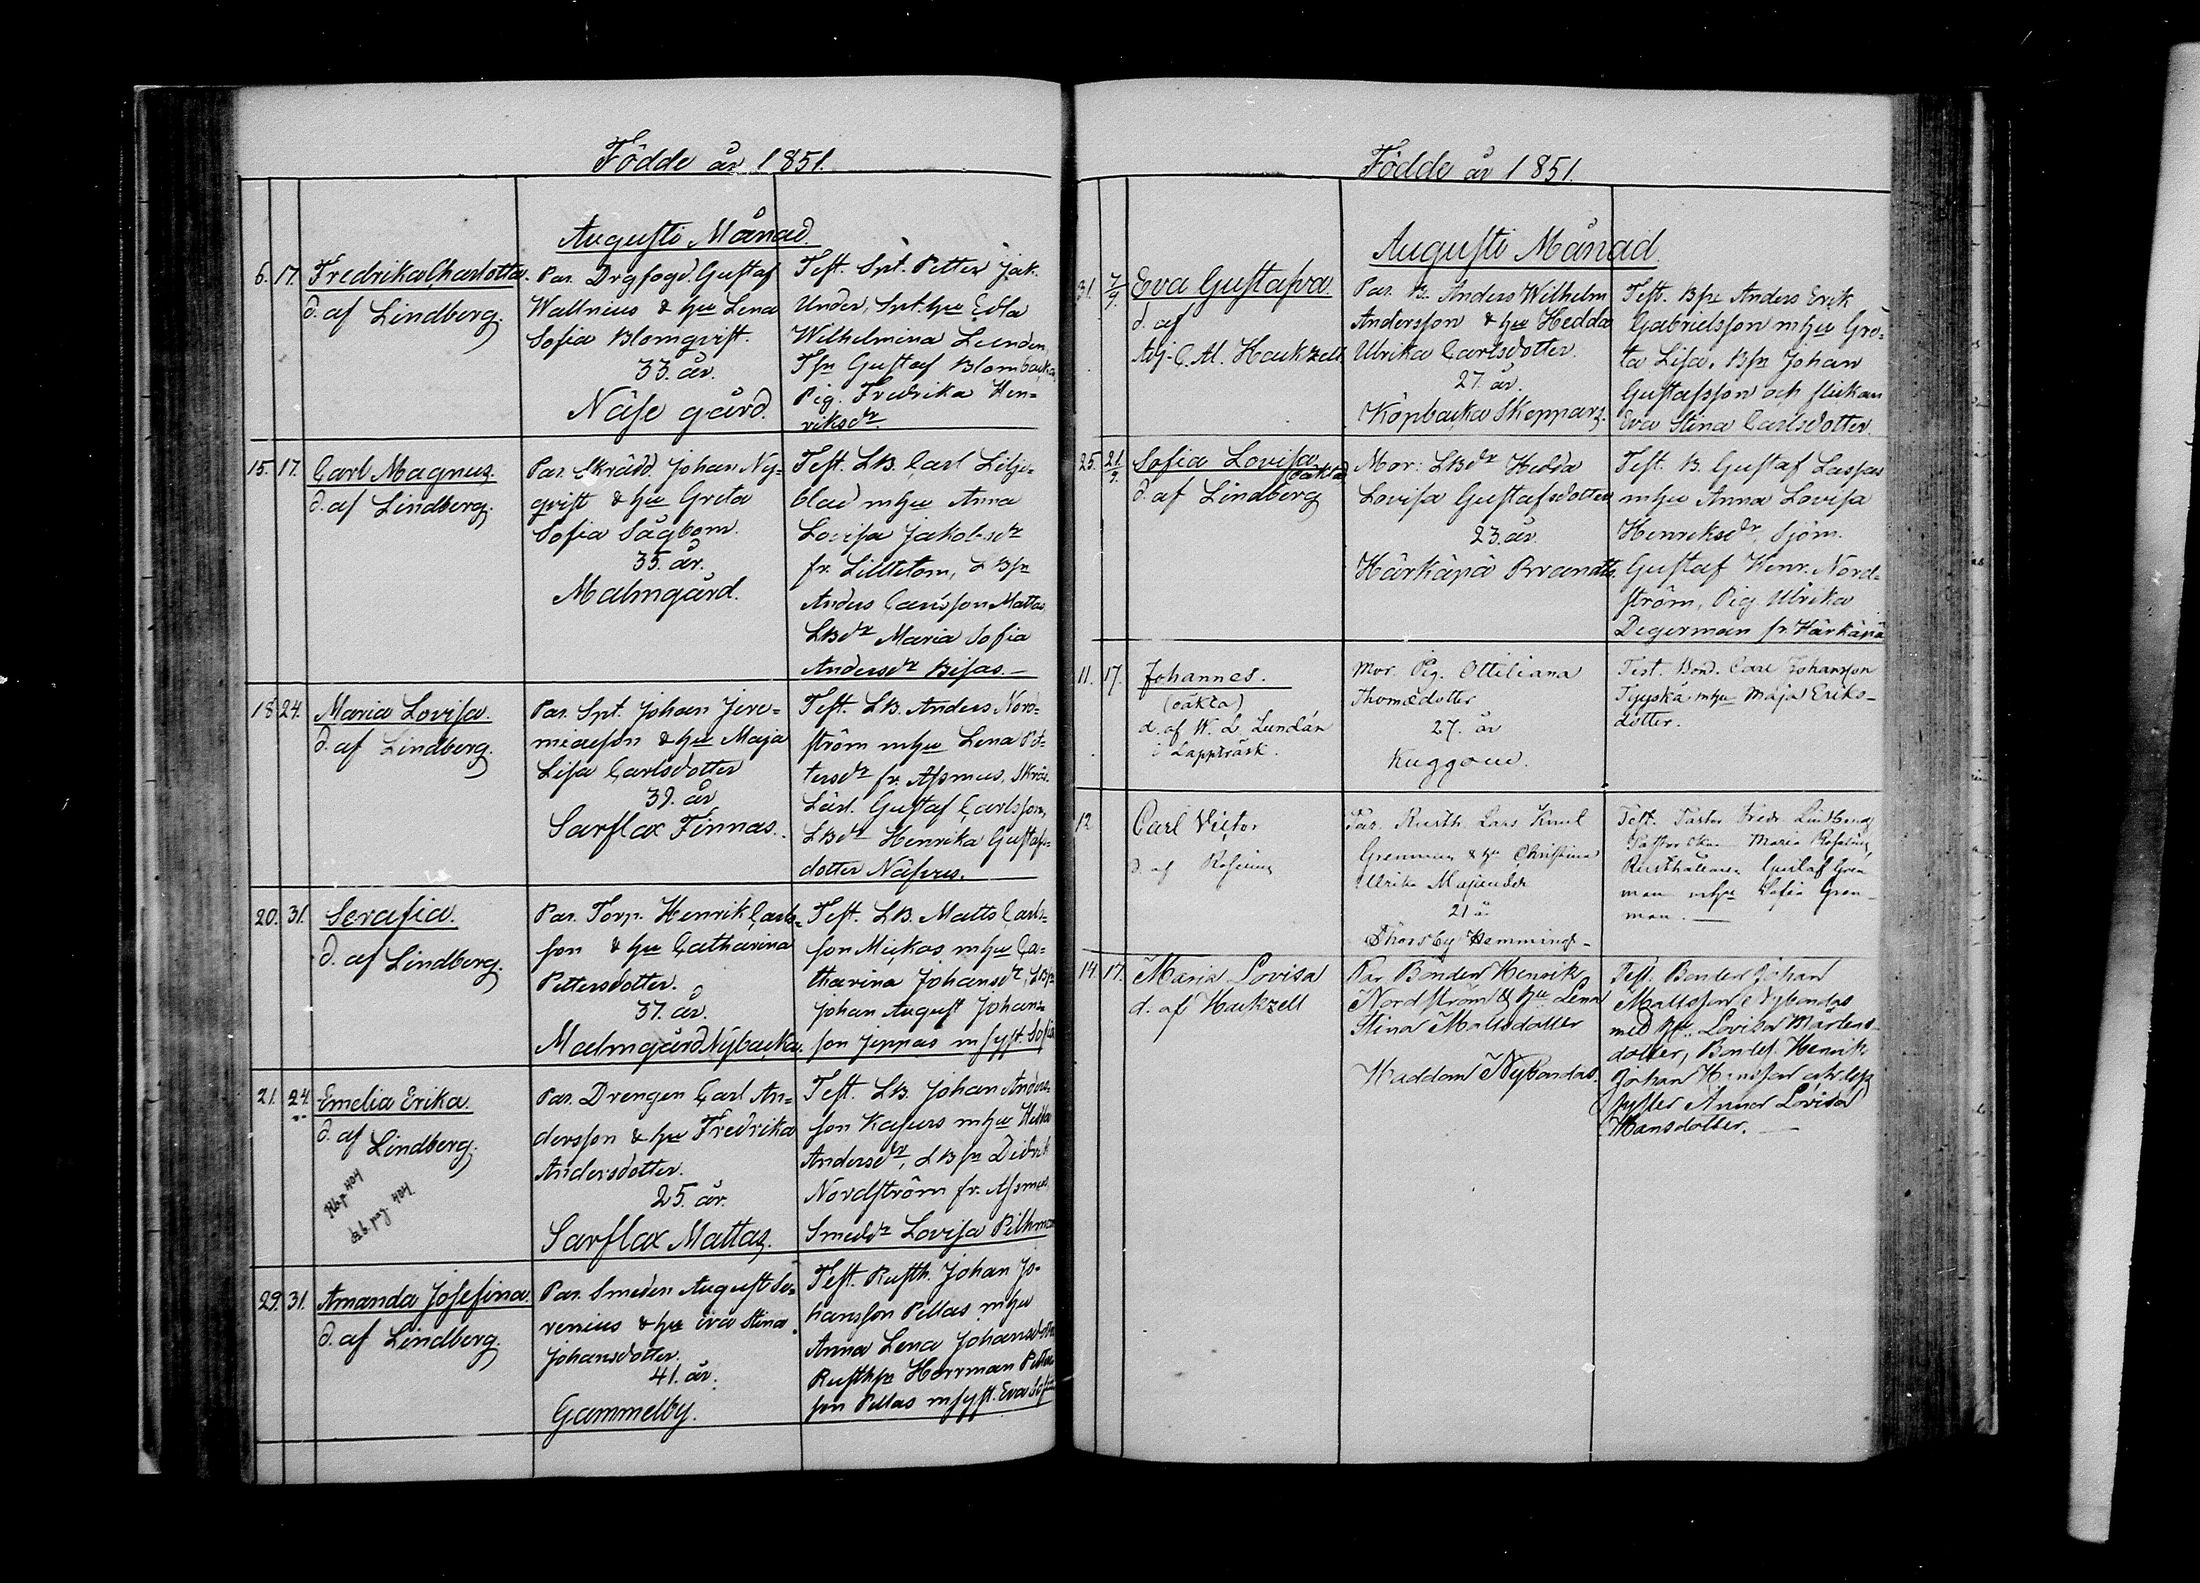 Födde år 1851.
Augusti Månad.
6. 17. Fredrika Charlotta.
d. af Lindberg.
Par. Drgfogd. Gustaf
Wallnius & hu Lena
Sofia Blomqvist.
33. år.
Näse gård.
Test. Spt. Petter Jak.
Under, Spt. hu Edla
Wilhelmina Lunden,
Tfr Gustaf Blombacka,
Pig. Fredrika Hen-
riksdr
15. 17. Carl Magnus.
d. af Lindberg.
Par. Skrädd. Johan Ny-
qvist & hu Greta
Sofia Sågbom.
35. år.
Malmgård.
Test. LB. Carl Lilje-
blad mhu Anna
Lovisa Jakobsdr
fr. Lilltstom, LBfr
Anders Carlsson Mattas,
LBdr Maria Sofia
Andersdr Bisas.
18. 24. Maria Lovisa.
d. af Lindberg.
Par. Spt. Johan Jere-
miasson & hu Maja
Lisa Carlsdotter
39. år
Sarflax Finnas.
Test. LB. Anders Nord-
ström mhu Lena Pet-
tersdr fr. Assmus, Skräd.
Lärl. Gustaf Carlsson,
LBdr Henrika Gustafs-
dotter Näfvers.
20. 31. Serafia.
d. af Lindberg.
Par. Torp. Henrik Carls-
son & hu Catharina
Pettersdotter.
37. år.
Malmgård Nybacka.
Test. LB. Matts Carls-
son Mickos mhu Ca-
tharina Johansdr, LBfr
Johan August Johans-
son Jeppas m syst. Sofia
21. 24. Emelia Erika.
d. af
Lindberg.
Rbp 404
bb. pag 404.
Par. Drengen Carl An-
dersson & hu Fredrika
Andersdotter.
25. år.
Sarflax Mattas.
Test. LB. Johan Anders-
son Kasurs mhu Hedda
Andersdr, LBfr Didrik
Nordström fr. Assmus,
Smeddr Lovisa Pilhman
29. 31. Amanda Josefina.
d. af Lindberg.
Par. Smeden August Se-
renius & hu Eva Stina
Johansdotter.
41. år.
Gammelby.
Test. Rusth. Johan Jo-
hansson Pellas mhu
Anna Lena Johansdotter
Rusthfr Herrman Petter
son Pellas m syst. Eva Sofia
Födde år 1851.
Augusti Månad.
31. 7/9. Eva Gustafva.
d. af
Adj. C. M. Hackzell
Par. B. Anders Wilhelm
Andersson & hu Hedda
Ulrika Carlsdotter.
27. år.
Köpbacka Skeppars.
Test. Bfr Anders Erik
Gabrielsson mhu Gre-
ta Lisa. Bfr Johan
Gustafsson och flickan
Eva Stina Carlsdotter.
25. 21/9 Sofia Lovisa
(oäkta)
d. af Lindberg
Mor: LBdr Hedda
Lovisa Gustafsdotter
23. år.
Härkäpä Brandts.
Test. B. Gustaf Laspas
mhu Anna Lovisa
Henriksdr, Sjöm.
Gustaf Henr. Nord-
ström, Pig. Ulrika
Degerman fr. Härkäpä
11. 17. Johannes.
(oäkta)
d. af W. L. Lundán
i Lappträsk.
Mor. Pig. Ottiliana
Thomædotter
27. år
Kuggom.
Test. Bond. Carl Johansson
Tyyskä mhu Maja Eriks-
dotter.
12 Carl Victor
d. af Rosening
Par. Rusth. Lars Knut
Grenman & hu Christina
Ulrika Majander
21 å.
Thorsby Hemmings-
Test. Pastor Fredr. Lindberg
Pastorskan Maria Rosening
Rusthållaren Gustaf Gren
man mhu Sofia Gren-
man.
14. 17. Maria Lovisa
d. af Hackzell
Par. Bonden Henrik
Nordström & hu Lena
Stina Mattsdotter
Haddom Nybondas.
Test. Bonden Johan
Mattsson Nybondas
med hu Lovisa Mårtens-
dotter, Bondes. Henrik
Johan Hansson och dess
syster Anna Lovisa
Hansdotter.